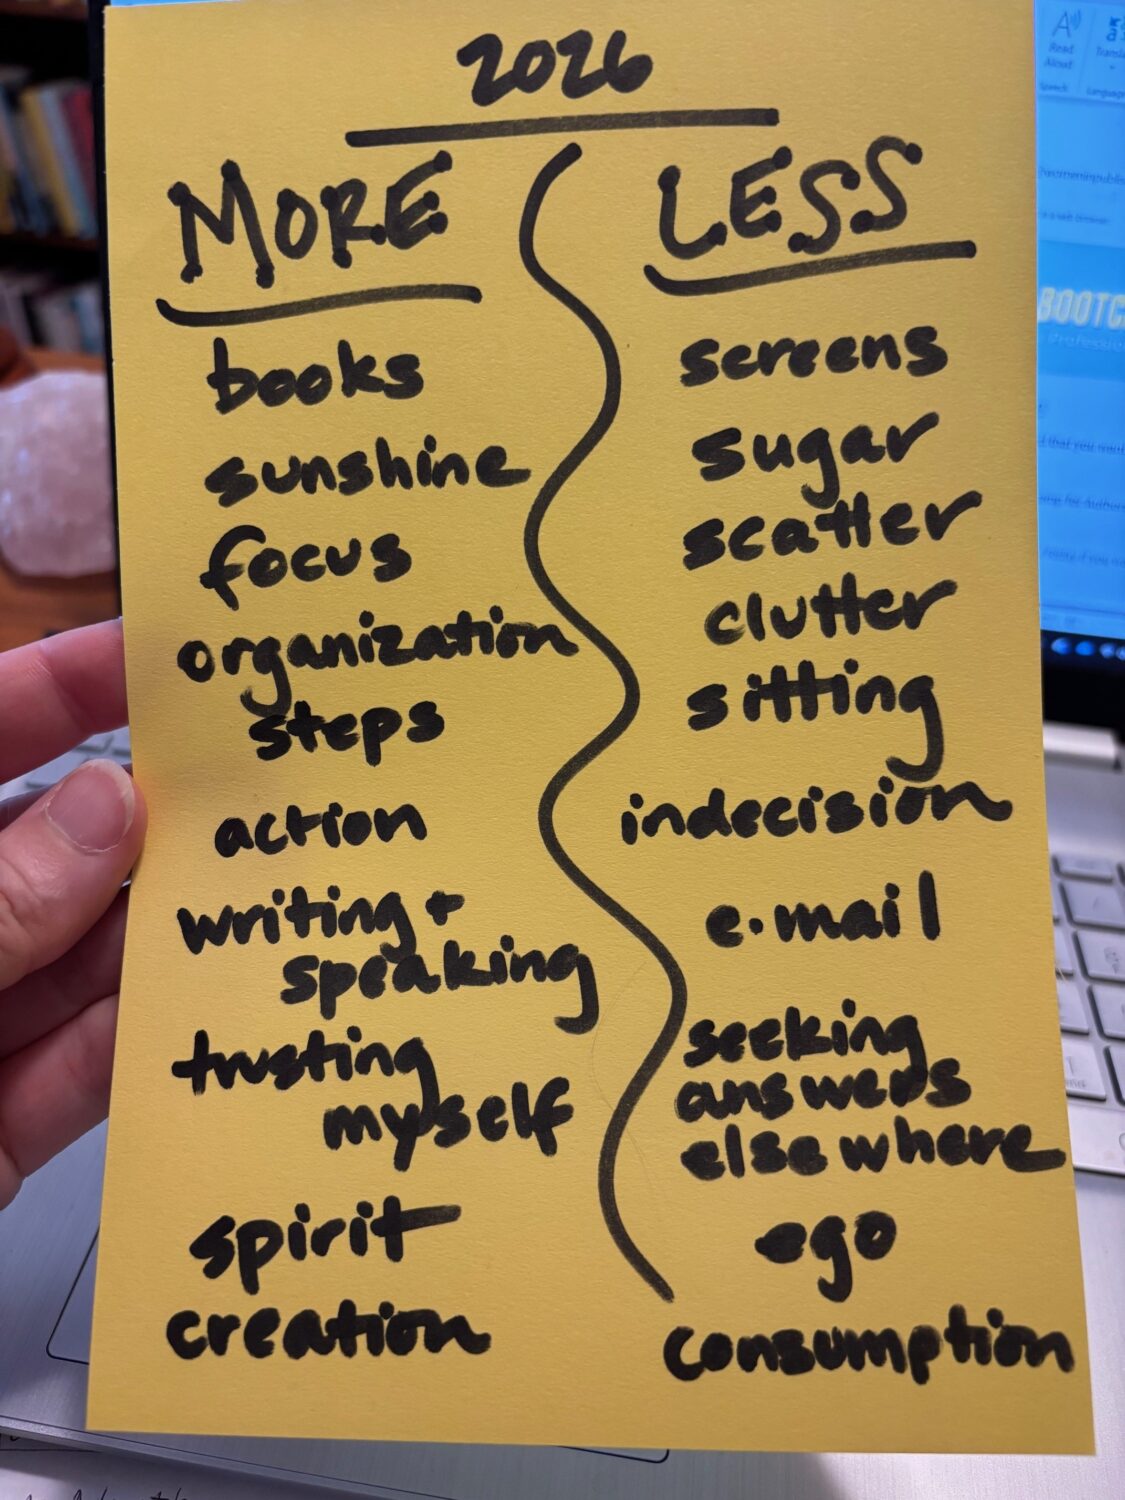 2026
MORE
LESS
books
sunshine
focus
organization
steps
action
writing +
speaking
trusting
myself
spirit
creation
screens
sugar
scatter
clutter
sitting
indecision
e-mail
seeking
answers
elsewhere
ego
consumption
Read
Aloud
Speech
BOOTC